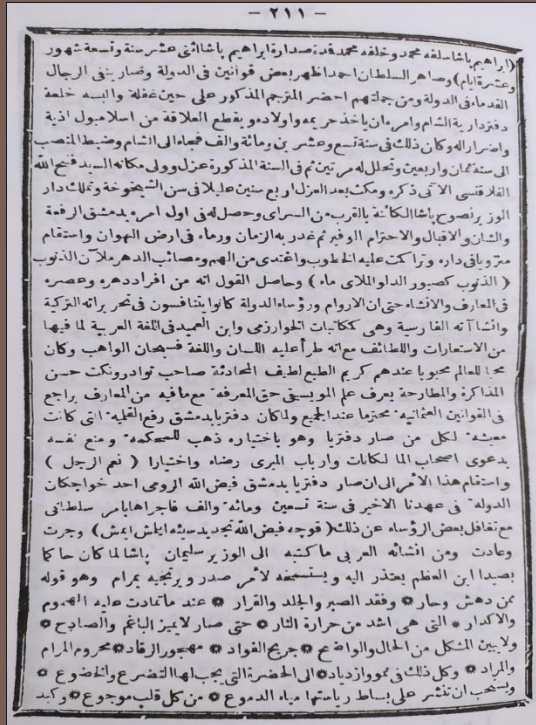 — ٢١١ —
(ابراهيم پاشا سلفه محمد وخلفه محمد فدة صدارة ابراهيم پاشا اثنى عشر سنة وتسعة شهور
وعشرة ايام) وصاهر السلطان احمد اظهر بعض قوانين فى الدولة وصار ينفى الرجال
القدماء فى الدولة ومن جملتهم احضر المترجم المذكور على حين غفلة والبسه خلعة
دفتردارية الشام وامره ان ياخذ حريمه واولاده ويقطع العلاقة من اسلامبول اذية
واضرارا له وكان ذلك فى سنة تسع وعشرين ومائة والف فجاء الى الشام وضبط المنصب
الى سنة ثمان واربعين وتخلل له مرتين ثم فى السنة المذكورة عزل وولى مكانه السيد فتح الله
الفلاقنسى الآتى ذكره ومكث بعد العزل اربع سنين عليلا فى سن الشيخوخة وتملك دار
الوزير نصوح پاشا الكائنة بالقرب من السراى وحصل له فى اول امره بدمشق الرفعة
والشان والاقبال والاحترام الوفير ثم غدر به الزمان ورماه فى ارض الهوان واستقام
منزويا فى داره وتراكت عليه الخطوب واغتدى من الهم ومصائب الدهر ملآن الذنوب
(الذنوب كصبور الدلو الملاى ماء) وحاصل القول انه من افراد دهره وعصره
فى المعارف والانشاء حتى ان الاروام ورؤساء الدولة كانوا يتنافسون فى تحريراته التركية
وانشاآته الفارسية وهى ككتابات الخوارزمى وابن العميد فى اللغة العربية لما فيها
من الاستعارات واللطائف مع انه طرأ عليه اللسان واللغة فسبحان الواهب وكان
محبا للعالم محبوبا عندهم كريم الطبع لطيف المحادثة صاحب نوادر ونكت حسن
المذاكرة والمطارحة يعرف علم الموسيقى حق المعرفة مع ما فيه من المعارف يراجع
فى القوانين العثمانية محترما عند الجميع ولما كان دفتريا بدمشق رفع القلمية التى كانت
معينة لكل من صار دفتريا وهو باختياره ذهب للمحكمة ومنع نفسه
بدعوى اصحاب المالكانات وارباب الميرى رضاء واختيارا (نعم الرجل)
واستقام هذا الأمر الى ان صار دفتريا بدمشق فيض الله الرومى احد خواجكان
الدولة فى عهدنا الاخير فى سنة تسعين ومائة والف فاجراها بامر سلطانى
مع تغافل بعض الرؤساء عن ذلك (قوجه فيض الله تجديد سيئه ايلمش ايمش) وجرت
وعادت ومن انشائه العربى ما كتبه الى الوزير سليمان پاشا لما كان حاكما
بصيدا ابن العظم يعتذر اليه ويستسمحه لأمر صدر ويرتجيه بمرام وهو قوله
ممن دهش وحار ❁ وفقد الصبر والجلد والقرار ❁ عند ما تمادت عليه الهموم
والاكدار ❁ التى هى اشد من حرارة النار ❁ حتى صار لا يميز الباغم والصادح ❁
ولا يبين المشكل من الحال والواضح ❁ جريح الفواد ❁ مهجور الرقاد ❁ محروم المرام
والمراد ❁ وكل ذلك فى نمو وازدياد ❁ الى الحضرة التى يجب لها التضرع والخضوع ❁
ويستحب ان تنثر على بساط رياستها مياه الدموع ❁ من كل قلب موجوع ❁ وكبد